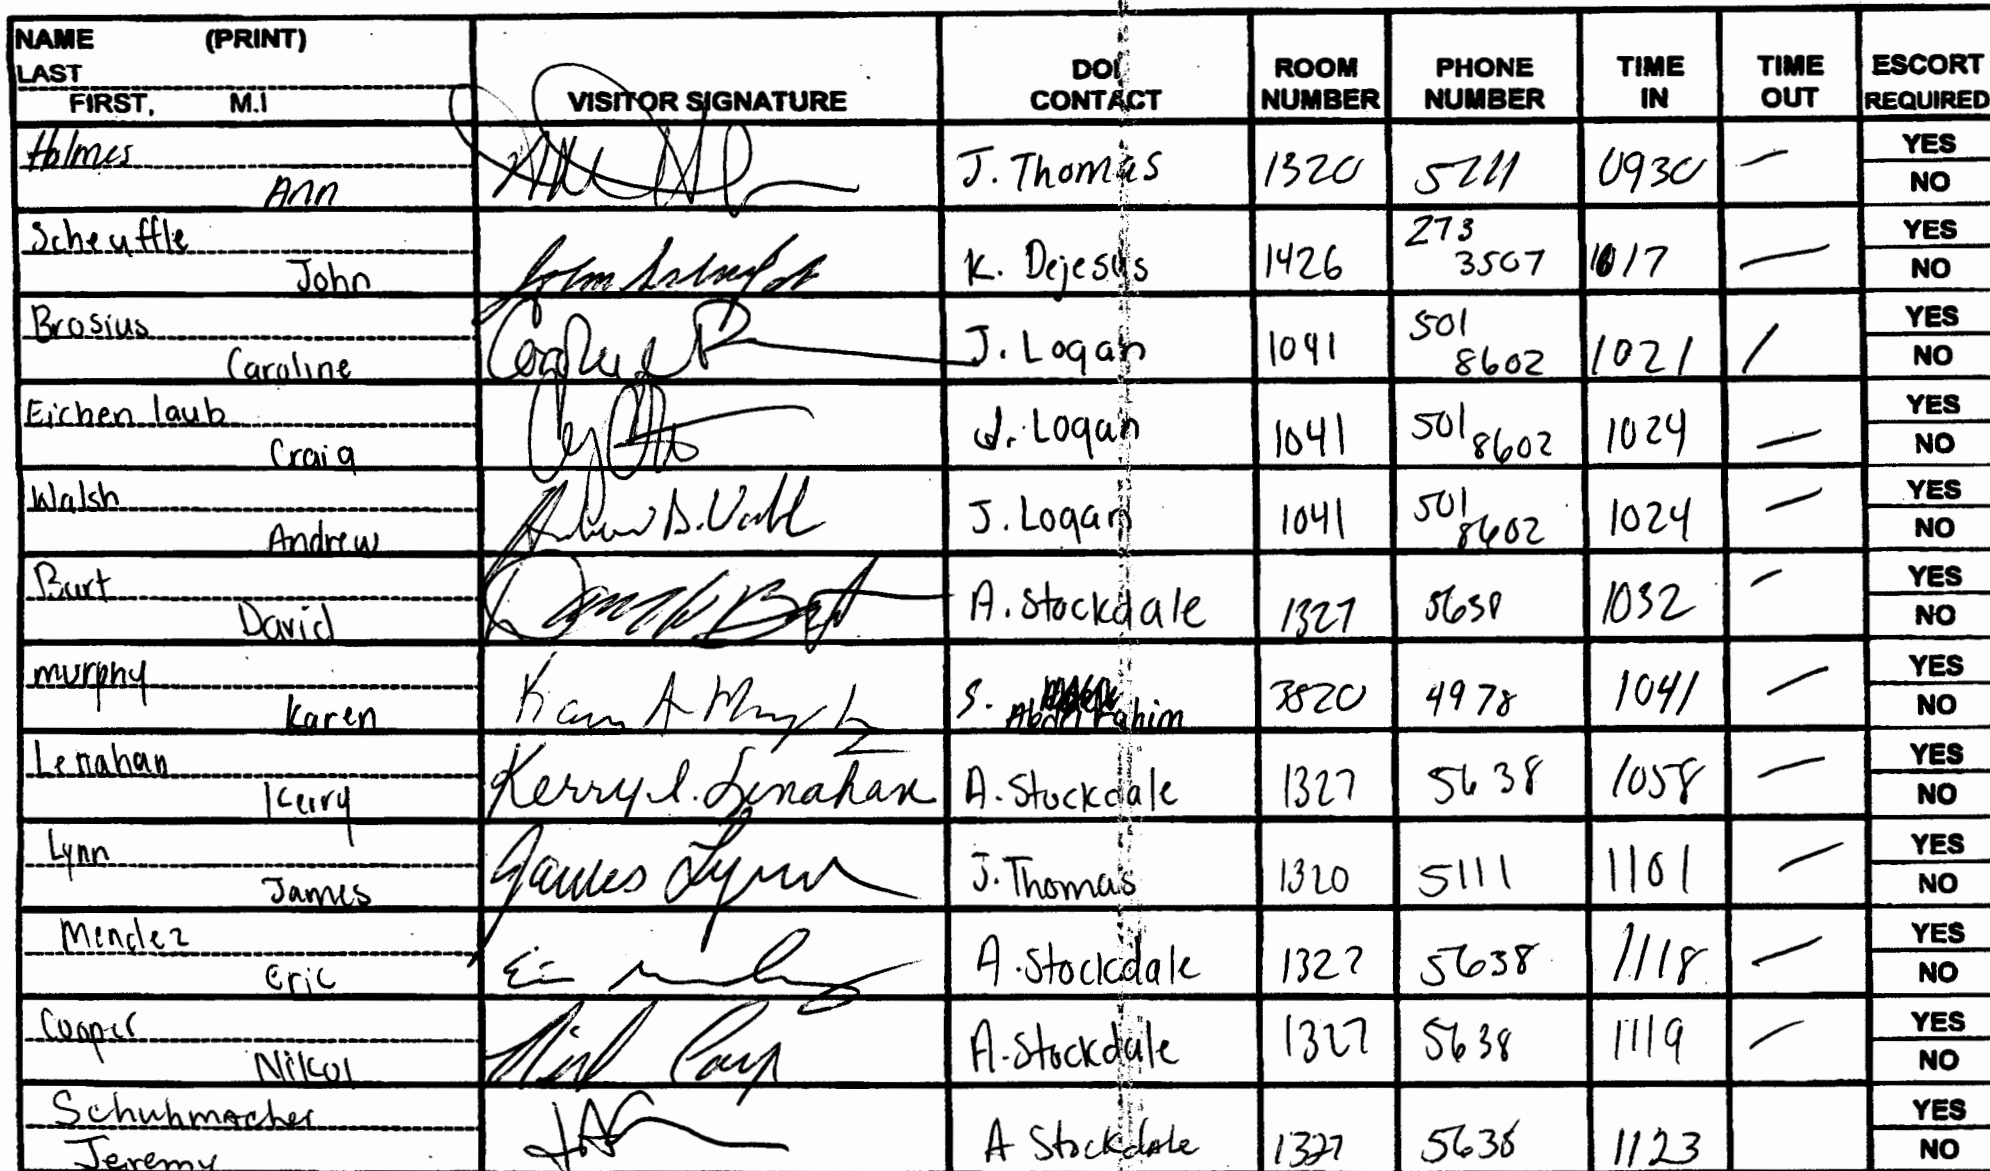 NAME (PRINT)
LAST
FIRST, M.I
VISITOR SIGNATURE
DOI
CONTACT
ROOM
NUMBER
PHONE
NUMBER
TIME
IN
TIME
OUT
ESCORT
REQUIRED
Holmes
Ann
J. Thomas 1320 5211 0930 —
YES
NO
Scheuffle
John
K. Dejesus 1426 273
3507 1017 —
YES
NO
Brosius
Caroline
J. Logan 1041 501
8602 1021 /
YES
NO
Eichenlaub
Craig
J. Logan 1041 501
8602 1024 —
YES
NO
Walsh
Andrew
J. Logan 1041 501
8602 1024 —
YES
NO
Burt
David
A. Stockdale 1327 5638 1032 —
YES
NO
murphy
Karen
Karen A Murphy
S. 3820 4978 1041 —
YES
NO
Lenahan
Kerry
Kerry L. Lenahan
A. Stockdale 1327 5638 1058 —
YES
NO
Lynn
James
James Lynn
J. Thomas 1320 5111 1101 —
YES
NO
Mendez
Eric
A. Stockdale 1327 5638 1118 —
YES
NO
Cooper
Nikol
A. Stockdale 1327 5638 1119 —
YES
NO
Schuhmacher
Jeremy
A Stockdale 1327 5638 1123
YES
NO